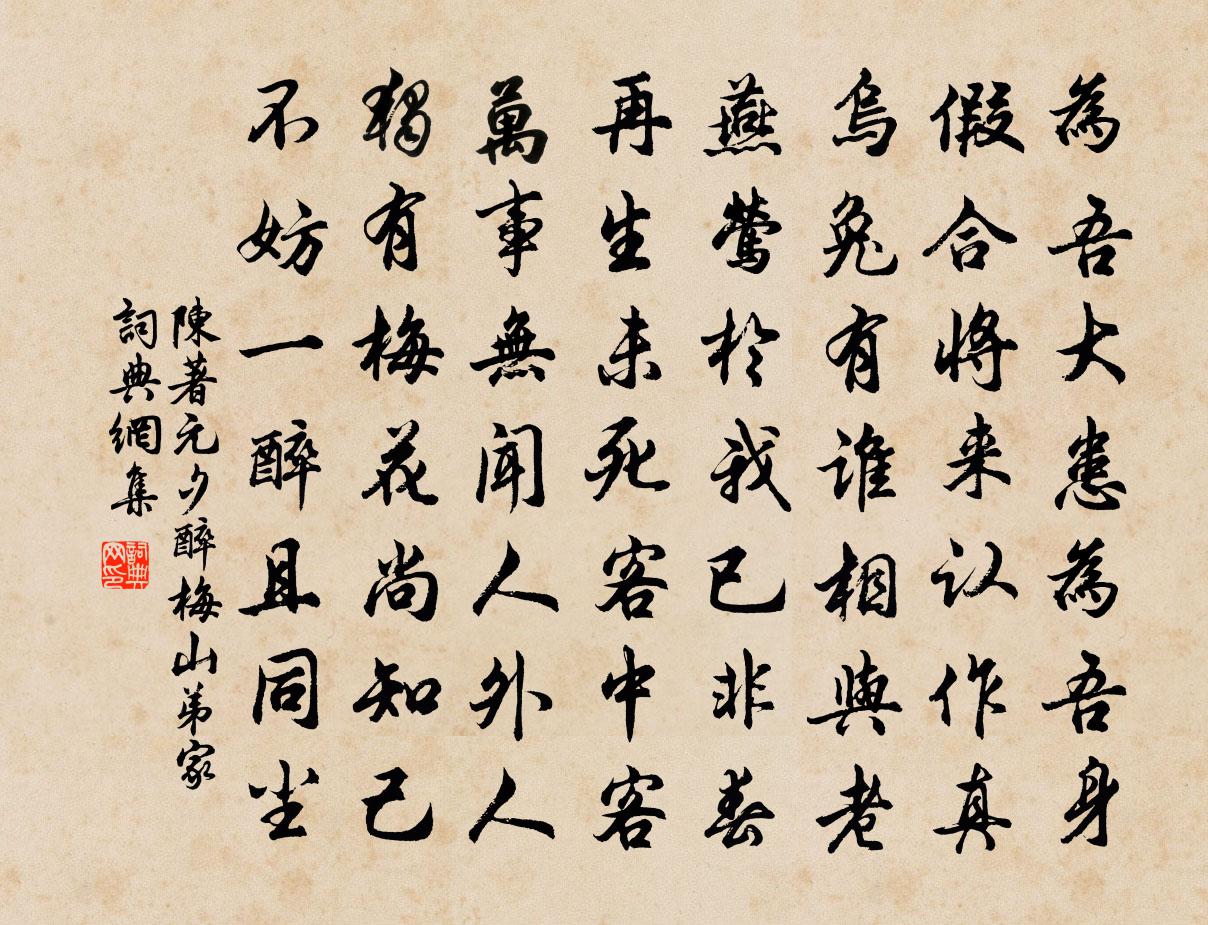 為吾大患為吾身
假合将来认作真
烏兔有谁相與老
燕鶯於我已非春
再生未死客中客
萬事無聞人外人
獨有梅花尚知己
不妨一醉且同尘
陳著元夕醉梅山弟家
詞典網集
詞典网印